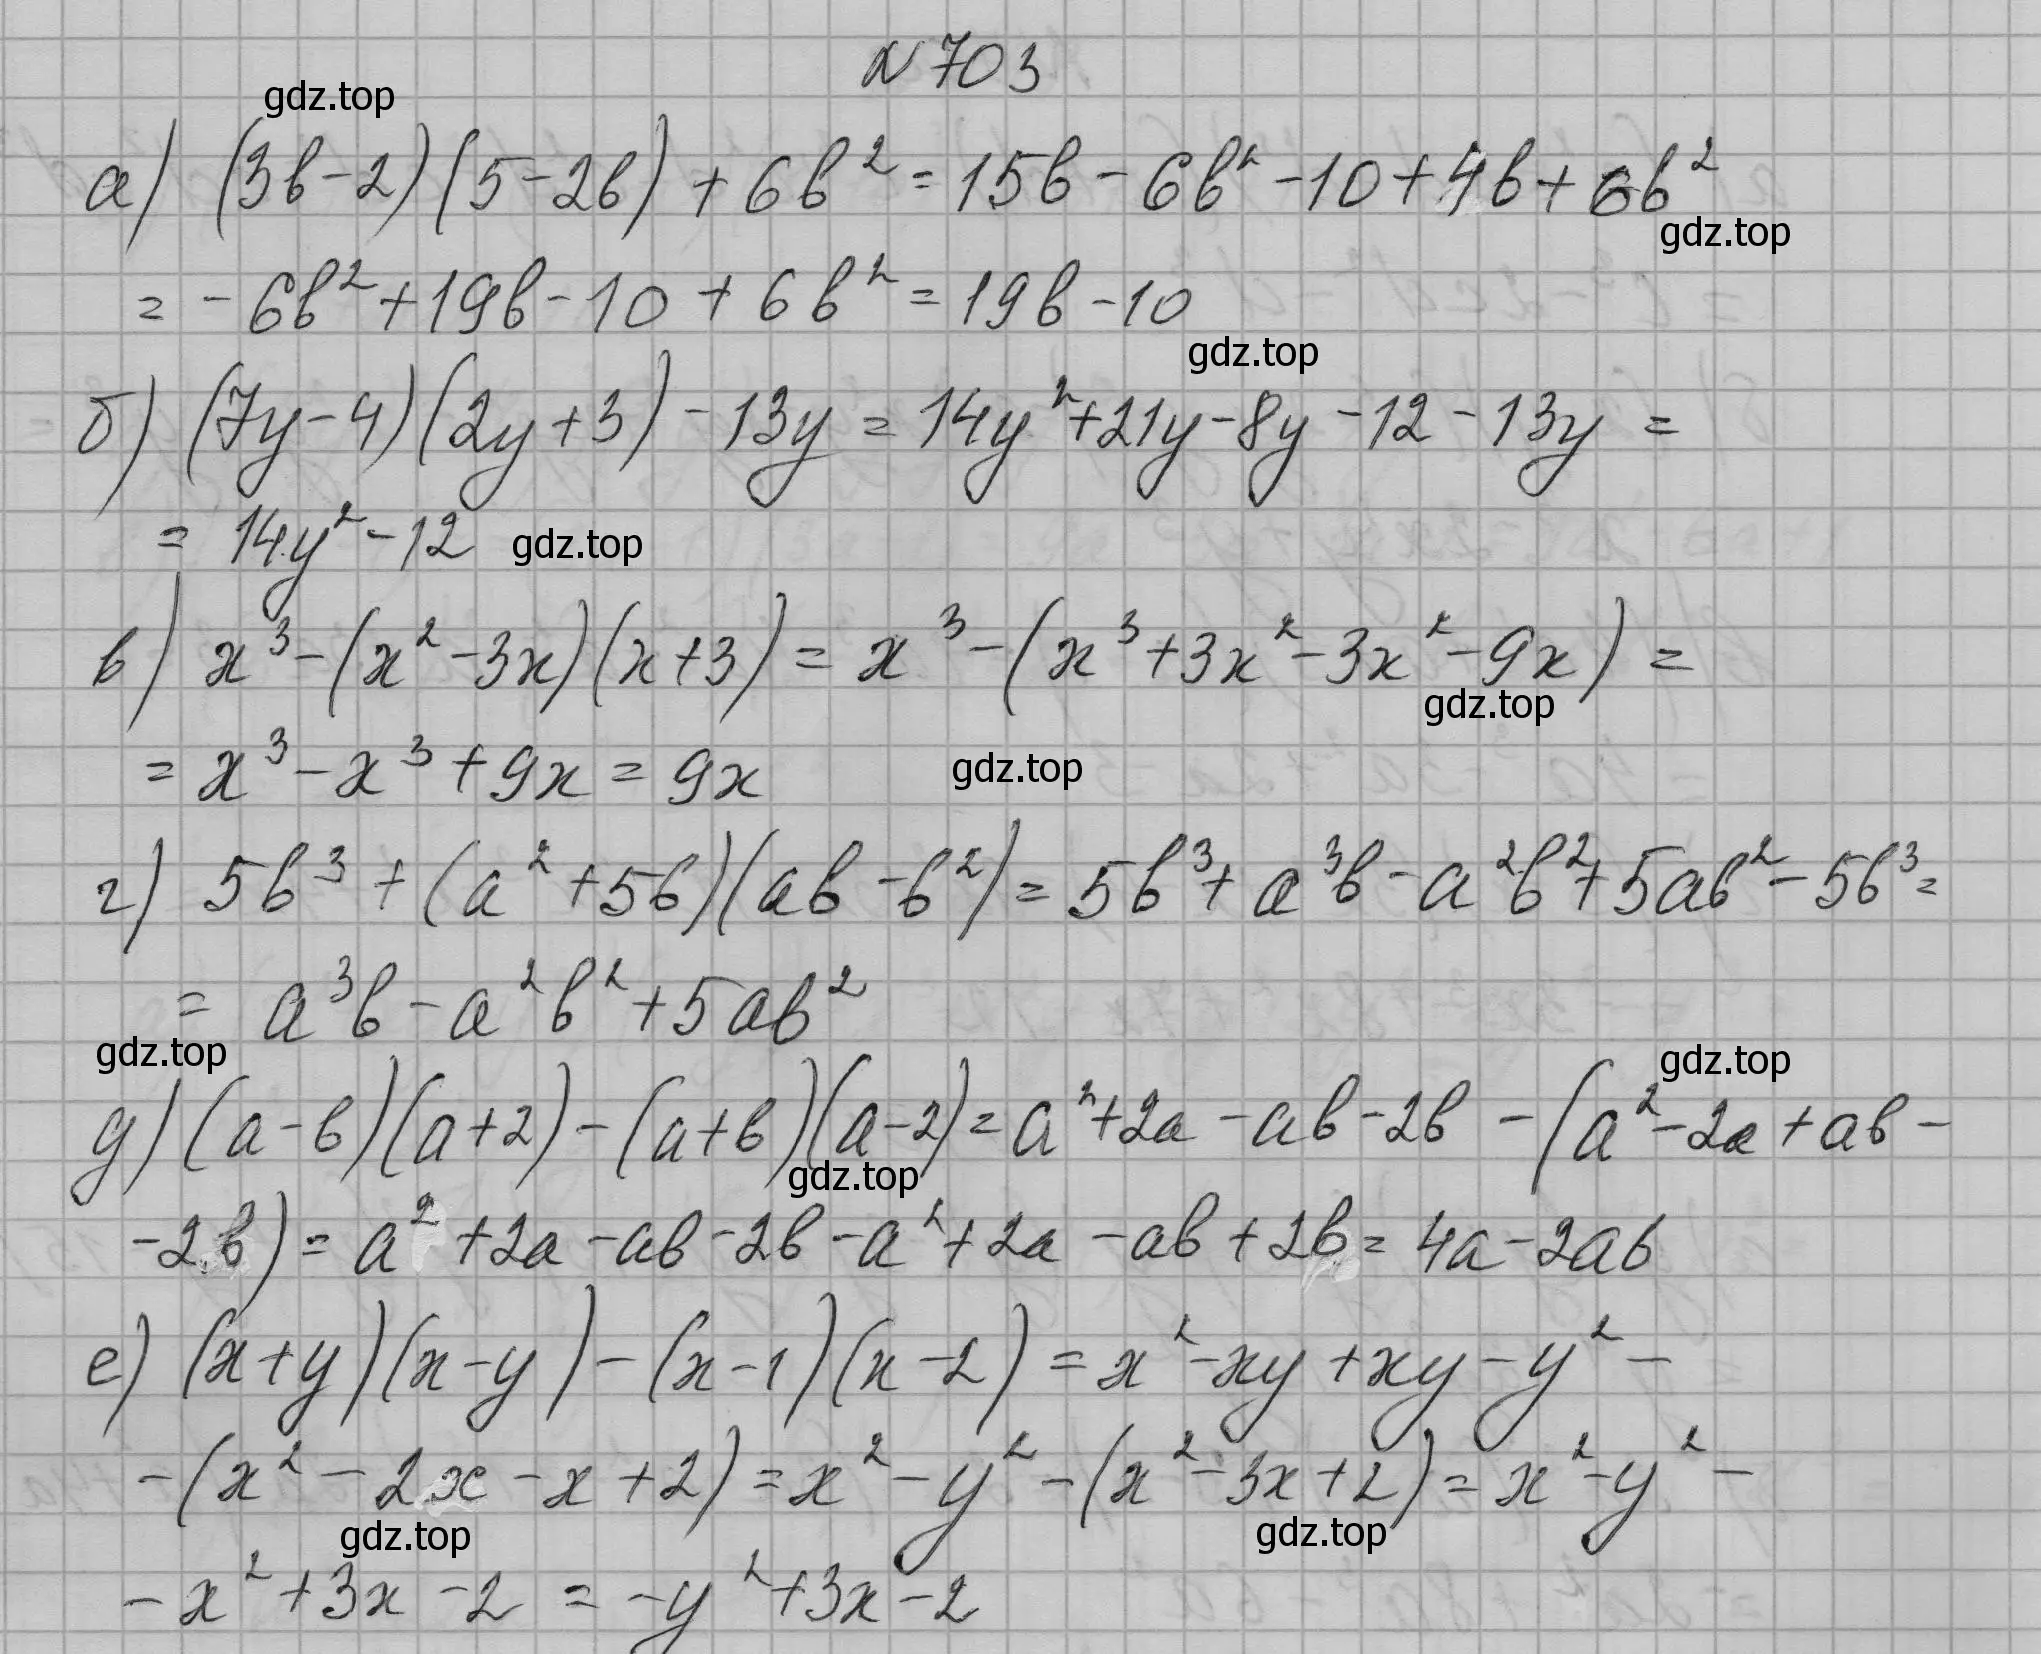 N 703
gdz.top
а) (3b-2)(5-2b)+6b² = 15b-6b²-10+4b+6b²
gdz.top
= -6b²+19b-10+6b² = 19b-10
gdz.top
б) (7y-4)(2y+3)-13y = 14y²+21y-8y-12-13y =
= 14y²-12
gdz.top
в) x³-(x²-3x)(x+3) = x³-(x³+3x²-3x²-9x) =
gdz.top
= x³-x³+9x = 9x
gdz.top
г) 5b³+(a²+5b)(ab-b²) = 5b³+a³b-a²b²+5ab²-5b³ =
= a³b-a²b²+5ab²
gdz.top
gdz.top
д) (a-b)(a+2)-(a+b)(a-2) = a²+2a-ab-2b-(a²-2a+ab-
gdz.top
-2b) = a²+2a-ab-2b-a²+2a-ab+2b = 4a-2ab
е) (x+y)(x-y)-(x-1)(x-2) = x²-xy+xy-y²-
-(x²-2x-x+2) = x²-y²-(x²-3x+2) = x²-y²-
gdz.top
gdz.top
-x²+3x-2 = -y²+3x-2